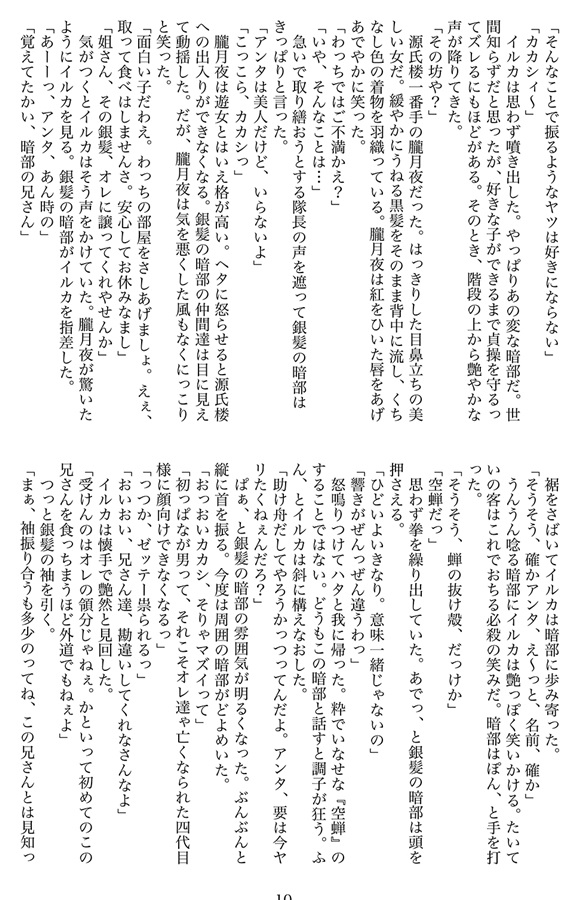 「そんなことで振るようなヤツは好きにならない」
「カカシィ〜」
　イルカは思わず噴き出した。やっぱりあの変な暗部だ。世
間知らずだと思ったが、好きな子ができるまで貞操を守るっ
てズレるにもほどがある。そのとき、階段の上から艶やかな
声が降りてきた。
「その坊や？」
　源氏楼一番手の朧月夜だった。はっきりした目鼻立ちの美
しい女だ。緩やかにうねる黒髪をそのまま背中に流し、くち
なし色の着物を羽織っている。朧月夜は紅をひいた唇をあげ
あでやかに笑った。
「わっちではご不満かえ？」
「いや、そんなことは…」
　急いで取り繕おうとする隊長の声を遮って銀髪の暗部は
きっぱりと言った。
「アンタは美人だけど、いらないよ」
「こっこら、カカシっ」
　朧月夜は遊女とはいえ格が高い。ヘタに怒らせると源氏楼
への出入りができなくなる。銀髪の暗部の仲間達は目に見え
て動揺した。だが、朧月夜は気を悪くした風もなくにっこり
と笑った。
「面白い子だわえ。わっちの部屋をさしあげましょ。えぇ、
取って食べはしませんさ。安心してお休みなまし」
「姐さん、その銀髪、オレに譲ってくれやせんか」
　気がつくとイルカはそう声をかけていた。朧月夜が驚いた
ようにイルカを見る。銀髪の暗部がイルカを指差した。
「あーーっ、アンタ、あん時の」
「覚えてたかい、暗部の兄さん」
　裾をさばいてイルカは暗部に歩み寄った。
「そうそう、確かアンタ、え〜っと、名前、確か」
　うんうん唸る暗部にイルカは艶っぽく笑いかける。たいて
いの客はこれでおちる必殺の笑みだ。暗部はぽん、と手を打
った。
「そうそう、蝉の抜け殻、だっけか」
「空蝉だっ」
　思わず拳を繰り出していた。あでっ、と銀髪の暗部は頭を
押さえる。
「ひどいよいきなり。意味一緒じゃないの」
「響きがぜんっぜん違うわっ」
　怒鳴りつけてハタと我に帰った。粋でいなせな『空蝉』の
することではない。どうもこの暗部と話すと調子が狂う。ふ
ん、とイルカは斜に構えなおした。
「助け舟だしてやろうかっつってんだよ。アンタ、要は今ヤ
リたくねぇんだろ？」
　ぱぁ、と銀髪の暗部の雰囲気が明るくなった。ぶんぶんと
縦に首を振る。今度は周囲の暗部がどよめいた。
「おっおいカカシ、そりゃマズイって」
「初っぱなが男って、それこそオレ達ゃ亡くなられた四代目
様に顔向けできなくなるっ」
「っつか、ゼッテー祟られるっ」
「おいおい、兄さん達、勘違いしてくれなさんなよ」
　イルカは懐手で艶然と見回した。
「受けんのはオレの領分じゃねぇ。かといって初めてのこの
兄さんを食っちまうほど外道でもねぇよ」
　つっと銀髪の袖を引く。
「まぁ、袖振り合うも多少のってね、この兄さんとは見知っ
10